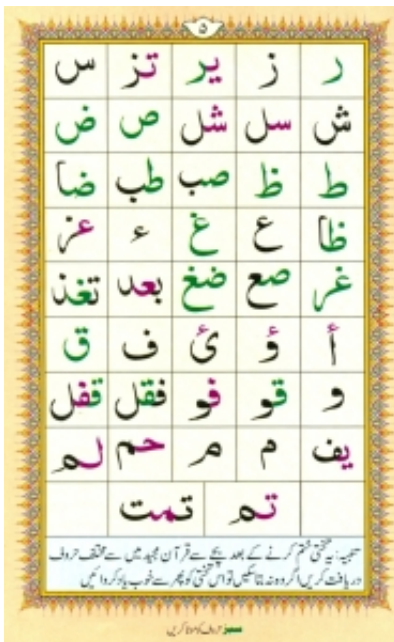 ۵
ر ز یر تز س
ش سل شل ص ض
ط ظ صب طب ضا
ظا ع غ ء عز
غر صع ضغ بعد تغذ
أ ؤ ئ ف ق
و قو فو فقل قفل
یف م مر حم لم
تم تمت
تنبیہ: یہ تختی ختم کرنے کے بعد بچے سے قرآن مجید میں سے مختلف حروف
دریافت کریں اگر وہ نہ بتا سکیں تو اس تختی کو پھر سے خوب یاد کروائیں
سبز حروف کو موٹا کریں